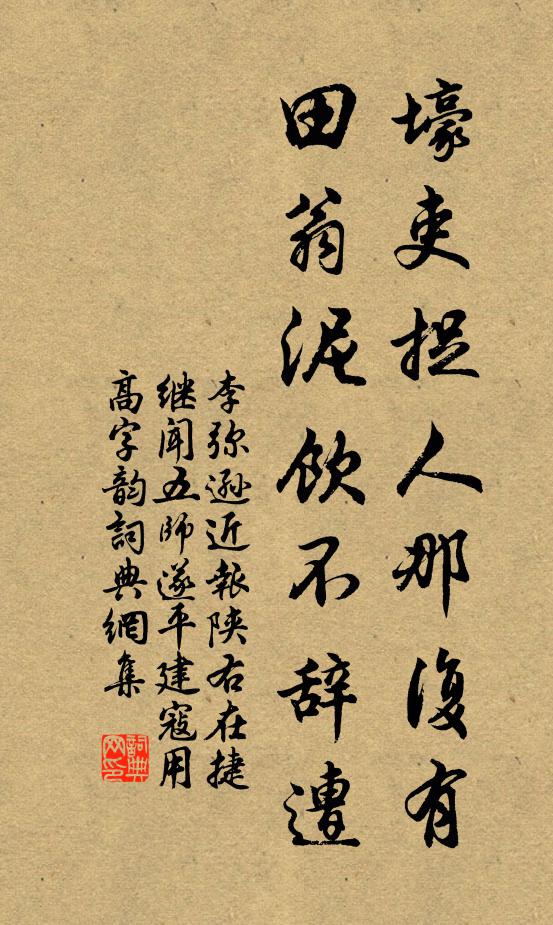 壕吏捉人那復有
田翁泥飲不辞遭
李弥遜近報陕右在捷
继闻五師遂平建寇用
高字韵詞典網集
詞典网印